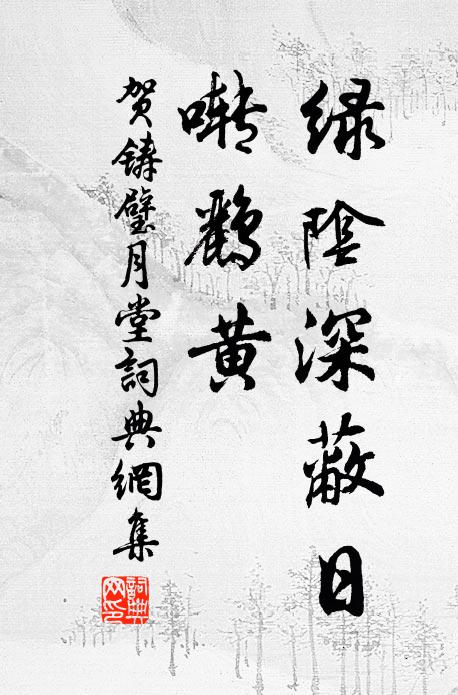 绿陰深蔽日
啭鹂黄
贺铸璧月堂詞典網集
詞典网印